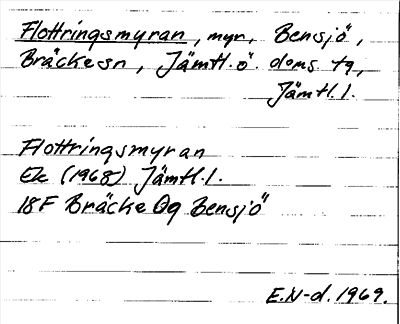 Flottringsmyran, myr, Bensjö,
Bräcke sn, Jämtl. ö. doms. tg,
Jämtl. l.
Flottringsmyran
Ek (1968) Jämtl. l.
18F Bräcke Og Bensjö
E.N-d. 1969.